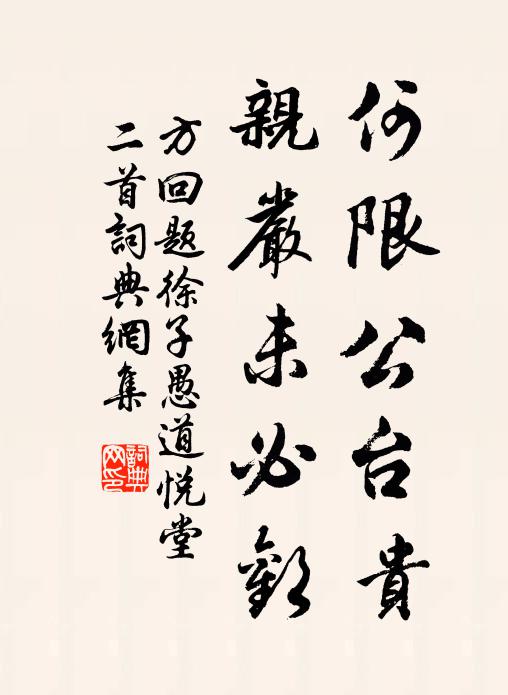 何限公台貴
親嚴未必歡
方回題徐子愚道悅堂
二首詞典網集
詞典
网印